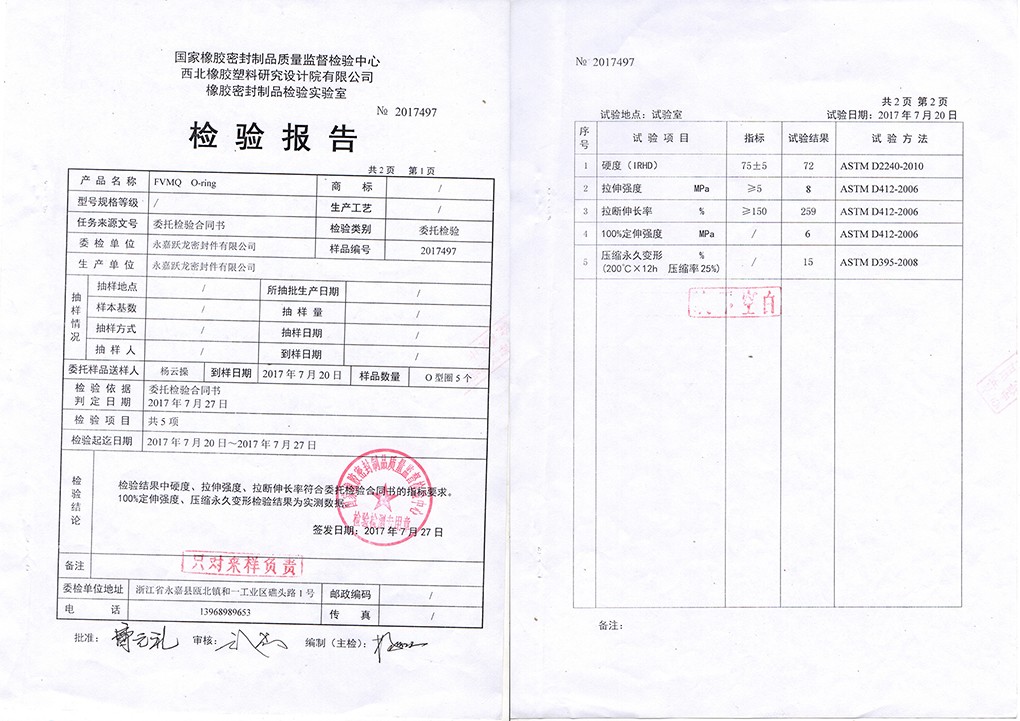 国家橡胶密封制品质量监督检验中心
西北橡胶塑料研究设计院有限公司
橡胶密封制品检验实验室
№ 2017497
检验报告
共 2 页 第 1 页
产品名称 FVMQ O-ring 商标 /
型号规格等级 / 生产工艺 /
任务来源文号 委托检验合同书 检验类别 委托检验
委检单位 永嘉跃龙密封件有限公司 样品编号 2017497
生产单位 永嘉跃龙密封件有限公司
抽样情况
抽样地点 / 所抽批生产日期 /
样本基数 / 抽样量 /
抽样方式 / 抽样日期 /
抽样人 / 到样日期 /
委托样品送样人 杨云操 到样日期 2017 年 7 月 20 日 样品数量 O 型圈 5 个
检验依据 委托检验合同书
判定日期 2017 年 7 月 27 日
检验项目 共 5 项
检验起迄日期 2017 年 7 月 20 日～2017 年 7 月 27 日
检验结论
检验结果中硬度、拉伸强度、拉断伸长率符合委托检验合同书的指标要求。
100%定伸强度、压缩永久变形检验结果为实测数据。
签发日期：2017 年 7 月 27 日
备注 只对来样负责
委检单位地址 浙江省永嘉县瓯北镇和一工业区礁头路 1 号 邮政编码 /
电话 13968989653 传真 /
批准： 审核： 编制（主检）：
№ 2017497
共 2 页 第 2 页
试验地点：试验室 试验日期：2017 年 7 月 20 日
序号 试验项目 指标 试验结果 试验方法
1 硬度（IRHD） 75±5 72 ASTM D2240-2010
2 拉伸强度 MPa ≥5 8 ASTM D412-2006
3 拉断伸长率 % ≥150 259 ASTM D412-2006
4 100%定伸强度 MPa / 6 ASTM D412-2006
5 压缩永久变形 %
(200℃×12h 压缩率 25%) / 15 ASTM D395-2008
下空白
备注：